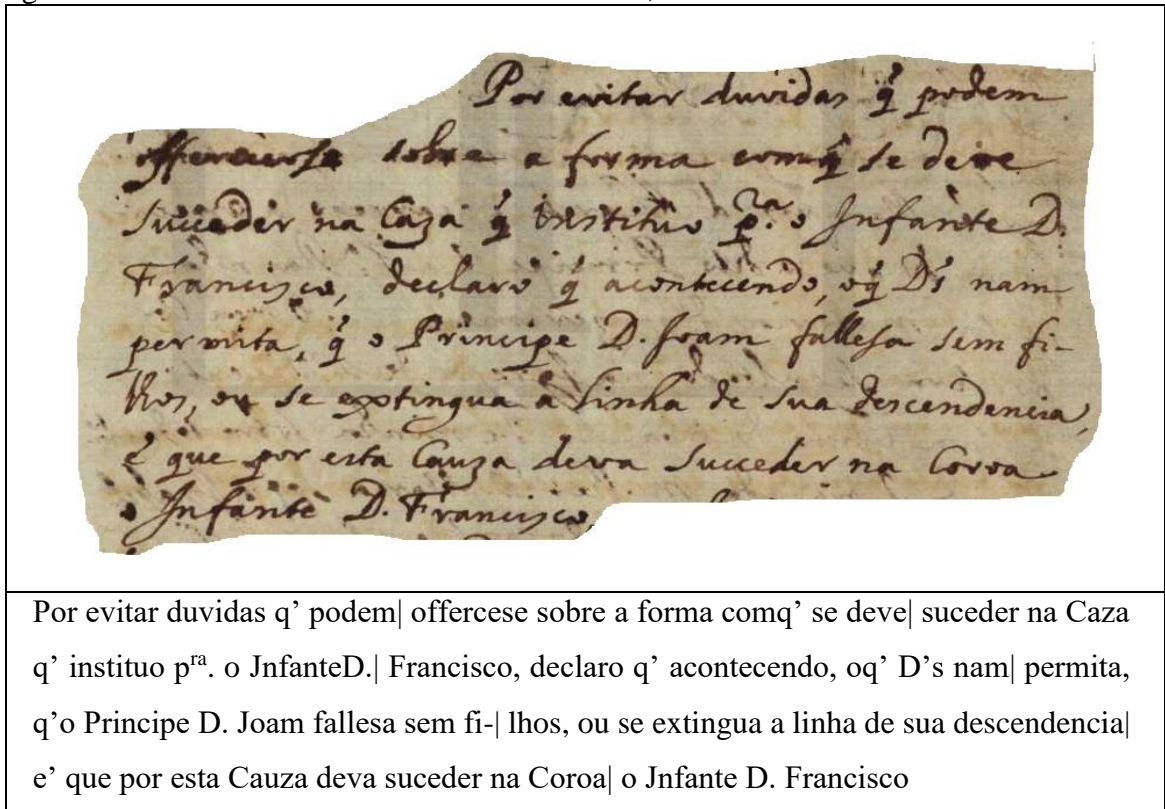 Por evitar duvidas q̃ podem
sobre a forma comq̃ se deve
Succeder na Caza q̃ instituo p.ra o Jnfante D.
Francisco, declaro q̃ acontecendo, oq̃ D's nam
permita, q̃ o Principe D. Joam fallesa sem fi-
lhos, ou se extingua a linha de sua descendencia,
e que por esta Cauza deva Succeder na Coroa
o Jnfante D. Francisco,
Por evitar duvidas q’ podem| offercese sobre a forma comq’ se deve| suceder na Caza
q’ instituo pra. o JnfanteD.| Francisco, declaro q’ acontecendo, oq’ D’s nam| permita,
q’o Principe D. Joam fallesa sem fi-| lhos, ou se extingua a linha de sua descendencia|
e’ que por esta Cauza deva suceder na Coroa| o Jnfante D. Francisco